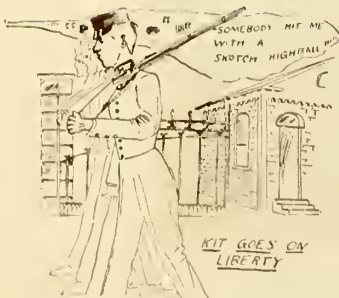 "SOMEBODY HIT ME
WITH A
SKOTCH HIGHBALL"
KIT GOES ON
LIBERTY